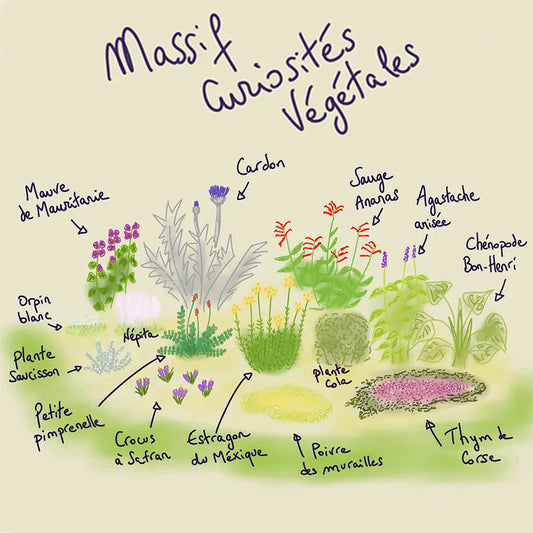 Massif
Curiosités
Végétales
Cardon
Mauve
de Mauritanie
Sauge
Ananas
Agastache
anisée
Chénopode
Bon-Henri
Orpin
blanc
Népita
Plante
Saucisson
Plante
Cola
Petite
pimprenelle
Crocus
à Safran
Estragon
du Méxique
Poivre
des murailles
Thym de
Corse